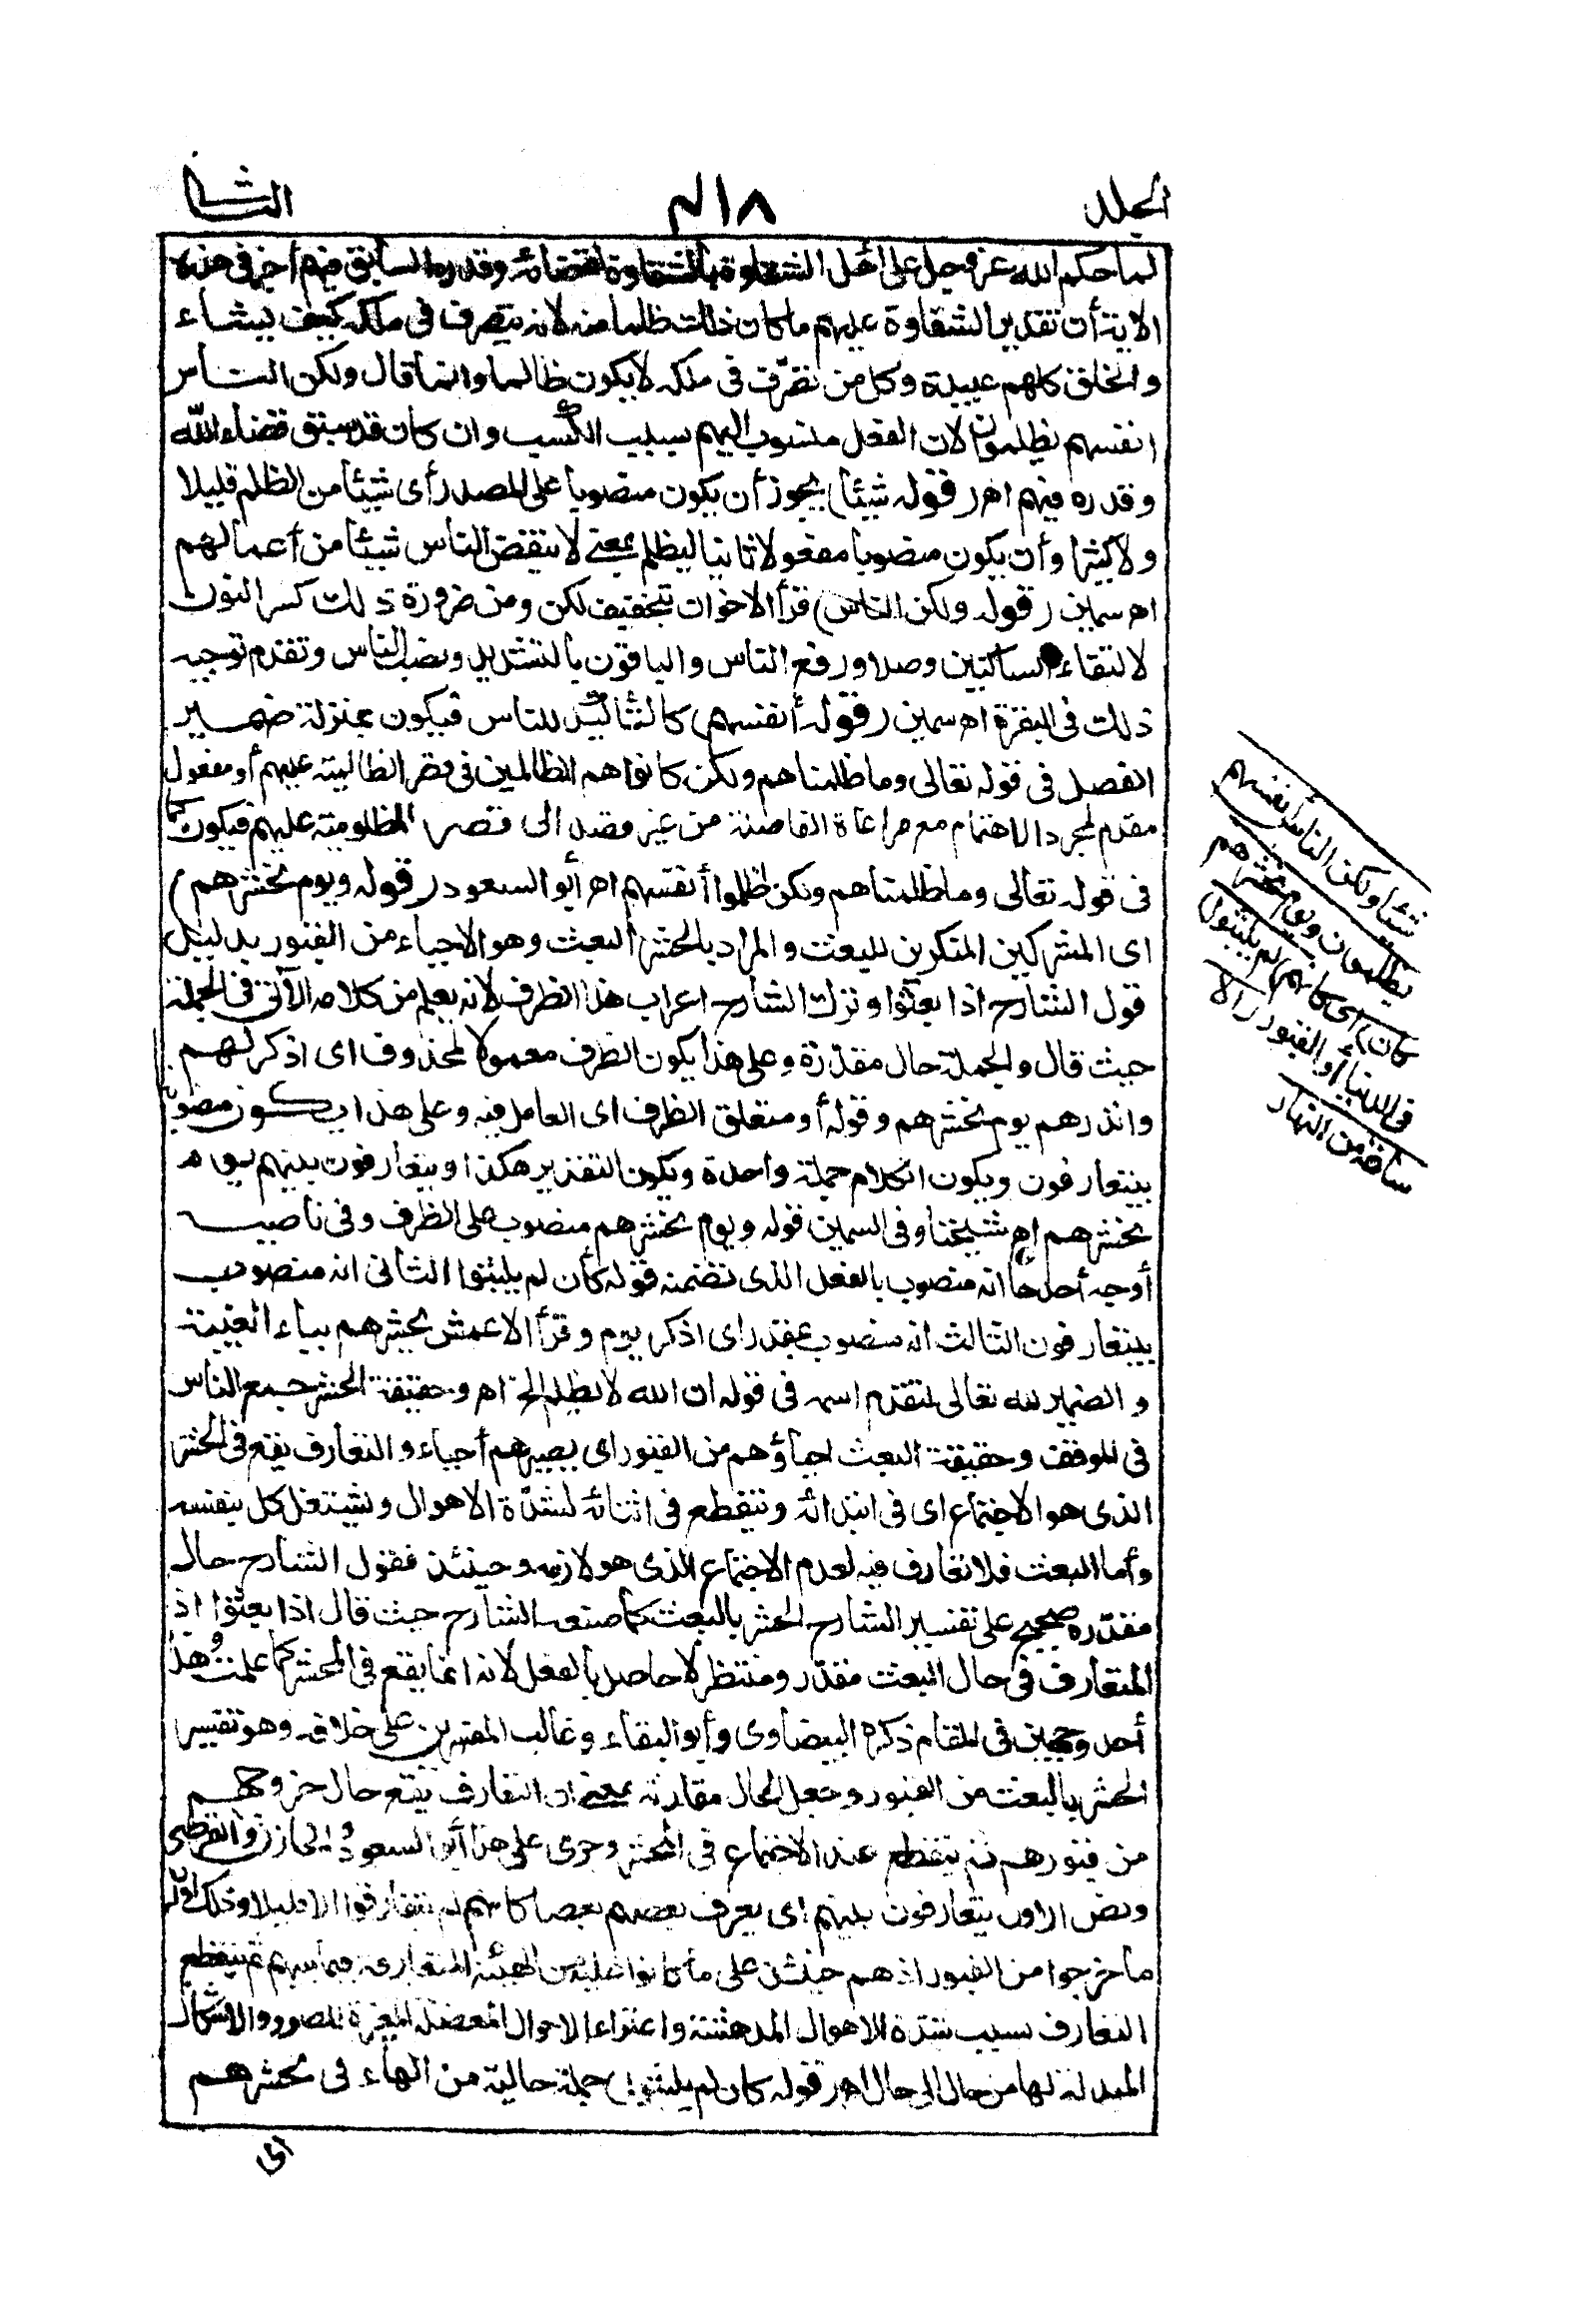 الجلد ٤١٨ الثانى
لما حكم الله عز وجل على أهل الشقاوة بالشقاوة لقضائه وقدره السابق فيهم أخبر فى هذه
الاية أن تقدير الشقاوة عليهم ما كان ذلك ظلما منه لانه يتصرف فى ملكه كيف يشاء
والخلق كلهم عبيده وكل من تصرّف فى ملكه لا يكون ظالما وانما قال ولكن الناس
انفسهم يظلمون لان الفعل منسوب اليهم بسبب الكسب وان كان قد سبق قضاء الله
وقدره فيهم اهـ (قوله شيئا) يجوز أن يكون منصوبا على المصدر أى شيئا من الظلم قليلا
ولا كثيرا وأن يكون منصوبا مفعولا ثانيا ليظلم بمعنى لا ينقض الناس شيئا من أعمالهم
اهـ سمين (قوله ولكن الناس) قرأ الاخوان بتخفيف لكن ومن ضرورة ذلك كسر النون
لالتقاء الساكنين وصلا ورفع الناس والباقون بالتشديد ونصب الناس وتقدم توجيه
ذلك فى البقرة اهـ سمين (قوله أنفسهم) كالتأكيد للناس فيكون بمنزلة ضمير
الفصل فى قوله تعالى وما ظلمناهم ولكن كانوا هم الظالمين فى قصر الظالمية عليهم أو مفعول
مقدم لمجرد الاهتمام مع مراعاة الفاصلة من غير قصد الى قصر المظلومية عليهم فيكون كما
فى قوله تعالى وما ظلمناهم ولكن ظلموا أنفسهم اهـ أبو السعود (قوله ويوم نحشرهم)
اى المشركين المنكرين للبعث والمراد بالحشر البعث وهو الاحياء من القبور بدليل
قول الشارح اذا بعثوا وترك الشارح اعراب هذا الظرف لانه يعلم من كلامه الآتى فى الجملة
حيث قال والجملة حال مقدّرة وعلى هذا يكون الظرف معمولا لمحذوف اى اذكر لهم
وانذرهم يوم نحشرهم وقوله أو متعلق الظرف اى العامل فيه وعلى هذا يكون منصوبا
بيتعارفون ويكون الكلام جملة واحدة ويكون التقدير هكذا ويتعارفون بينهم يوم
نحشرهم اهـ شيخنا وفى السمين قوله ويوم نحشرهم منصوب على الظرف وفى ناصبه
أوجه أحدها انه منصوب بالفعل الذى تضمنه قوله كأن لم يلبثوا الثانى انه منصوب
بيتعارفون الثالث انه منصوب بمقدر اى اذكر يوم وقرأ الاعمش يحشرهم بياء الغيبة
والضمير لله تعالى لتقدم اسمه فى قوله ان الله لا يظلم الخ اهـ وحقيقة الحشر جمع الناس
فى الموقف وحقيقة البعث احياؤهم من القبور اى يصيرهم أحياء والتعارف يقع فى الحشر
الذى هو الاجتماع اى فى ابتدائه وينقطع فى اثنائه لشدّة الاهوال ويشتغل كل بنفسه
وأما البعث فلا تعارف فيه لعدم الاجتماع الذى هو لازمه وحينئذ فقول الشارح حال
مقدّرة صحيح على تفسير الشارح الحشر بالبعث كما صنع الشارح حيث قال اذا بعثوا اذ
المتعارف فى حال البعث مقدّر ومنتظر لا حاصل بالفعل لانه انما يقع فى المحشر كما علمت وهذا
أحد وجهين فى المقام ذكره البيضاوى وأبو البقاء وغالب المفسرين على خلافه وهو تفسير
الحشر بالبعث من القبور وجعل الحال مقارنة بمعنى ان التعارف يقع حال خروجهم
من قبورهم ثم ينقطع عند الاجتماع فى المحشر وجرى على هذا أبو السعود والخازن والقرطبى
ونص الاول يتعارفون بينهم اى يعرف بعضهم بعضا كانهم لم يتعارفوا الا قليلا وذلك أوّل
ما خرجوا من القبور اذ هم حينئذ على ما كانوا عليه من الهيئة المتعارفة فيما بينهم ثم ينقطع
التعارف بسبب شدة الاهوال المدهشة واعتراء الاحوال المعضلة المغيرة للصور والاشكال
المبدلة لها من حال الى حال اهـ (قوله كان لم يلبثوا) جملة حالية من الهاء فى نحشرهم
اى
شيئا ولكن الناس أنفسهم
يظلمون ويوم نحشرهم
كأن اى كانهم لم يلبثوا
فى الدنيا أو القبور الا
ساعة من النهار